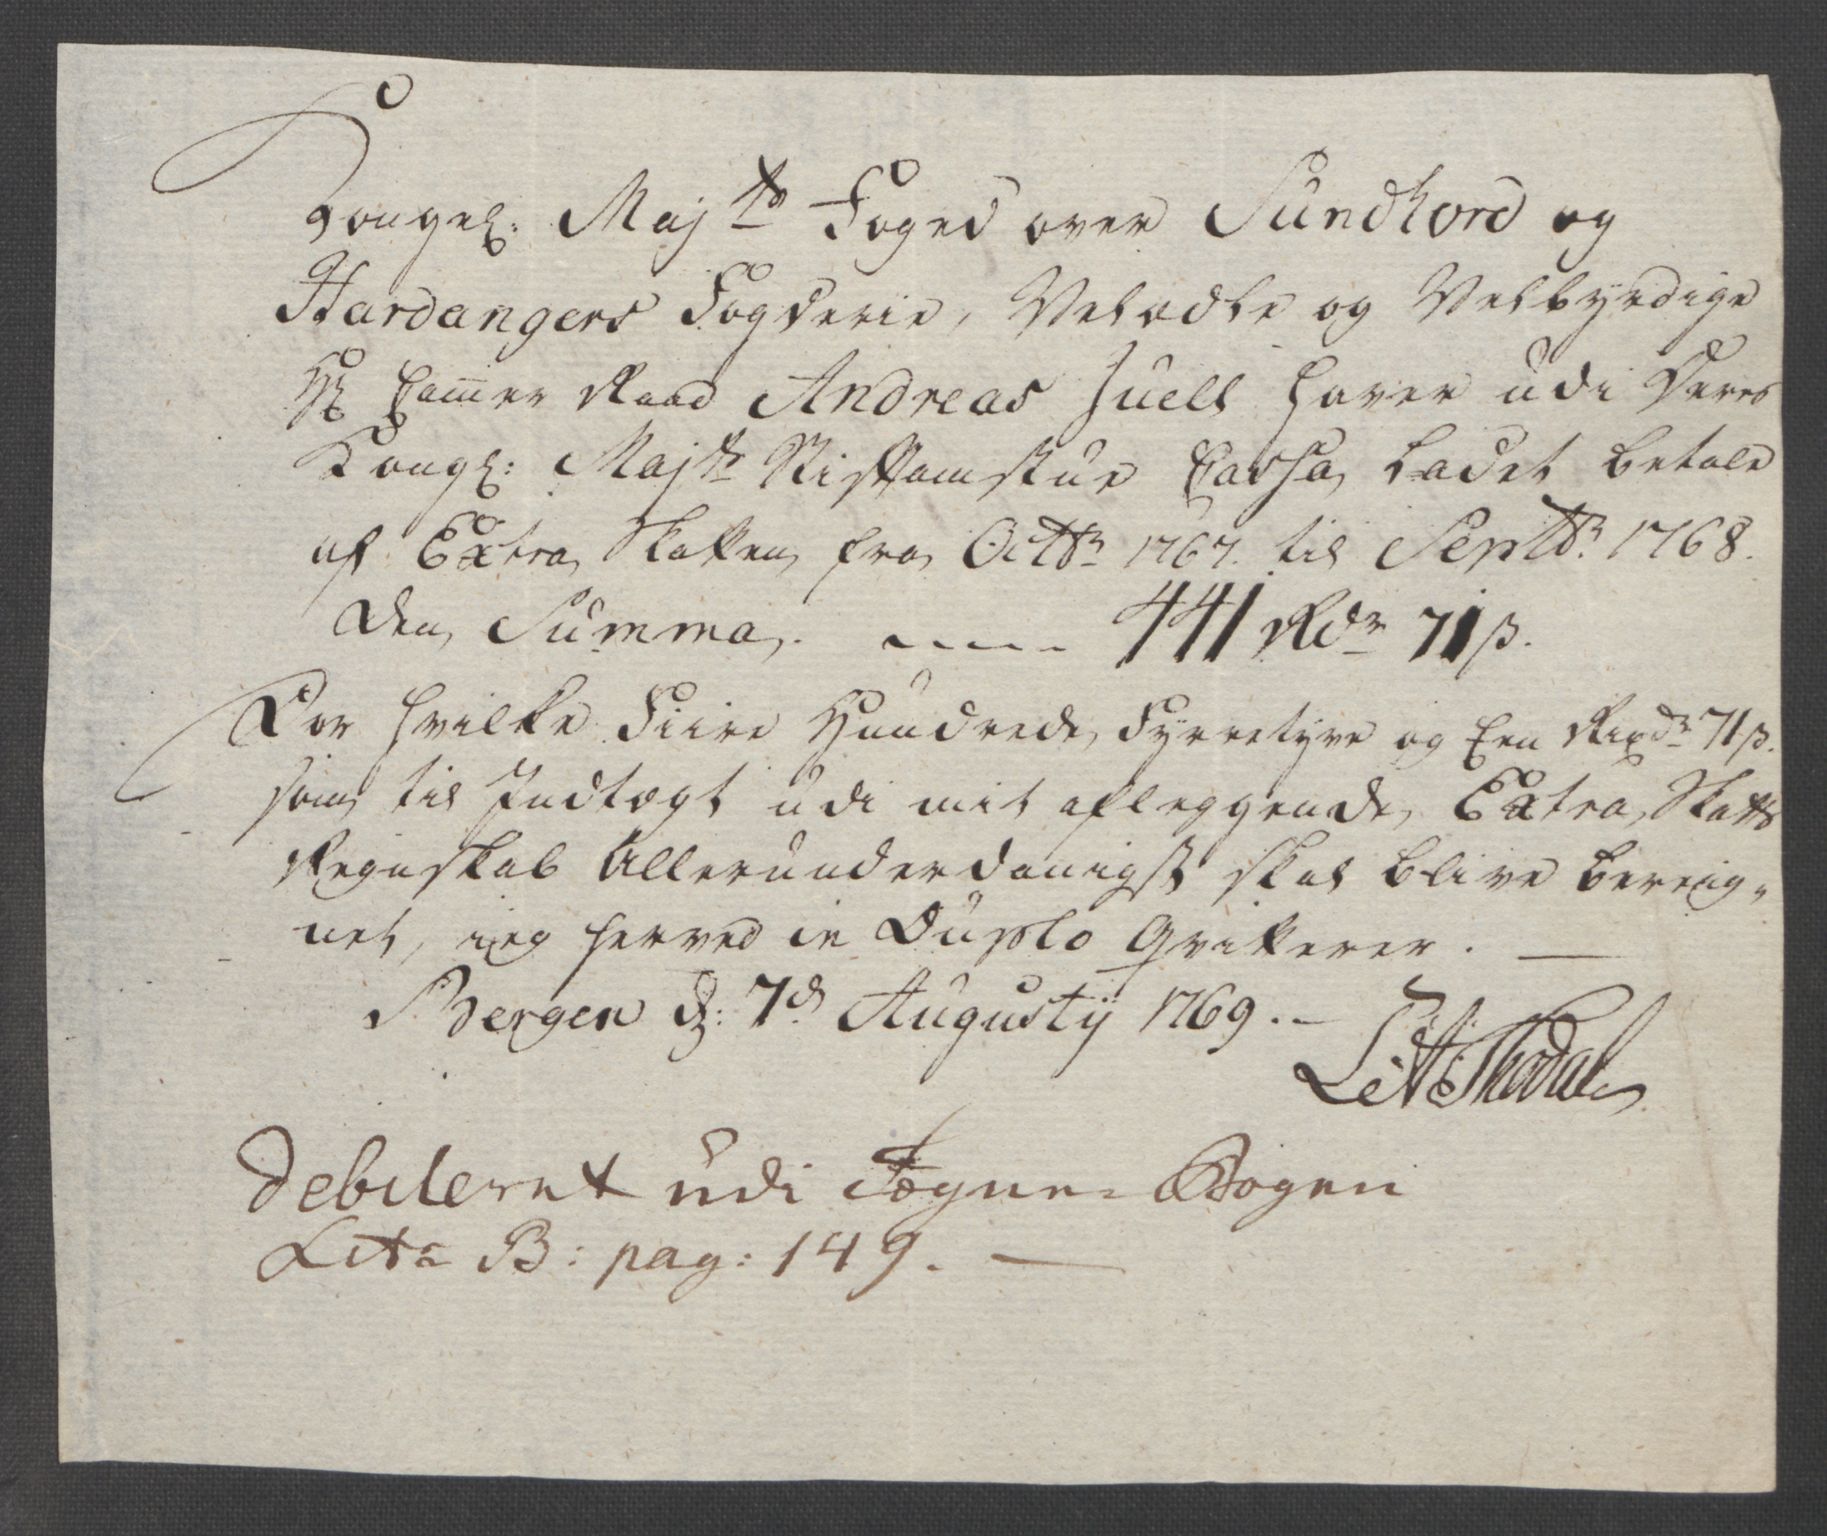 Kongel: Majts Foged over Sundhord og
Hardangers Fogderie, Velædle og Velbyrdige
Hr Cammer Raad Andreas Juell haver udi Deres
Kongl: Majts Stiftamstue Cassa, ladet betale
af Extra Skatten fra Octbr 1767. til Septbr 1768.
den Summa. ---- 441 Rdr 71 ß.
For hvilke Fiire Hundrede, Fyrretyve og Een Rixdr 71 ß.
som til Indtægt udi mit aflæggende, Extra Skatts
Regnskab Allerunderdanigst skal blive bereig-
net, ieg herved in Duplo Qvitterer. —
Bergen d: 7de Augustij 1769. –
Thodal
Debiteret udi Tegne-Bogen
Litr B: pag: 149. —